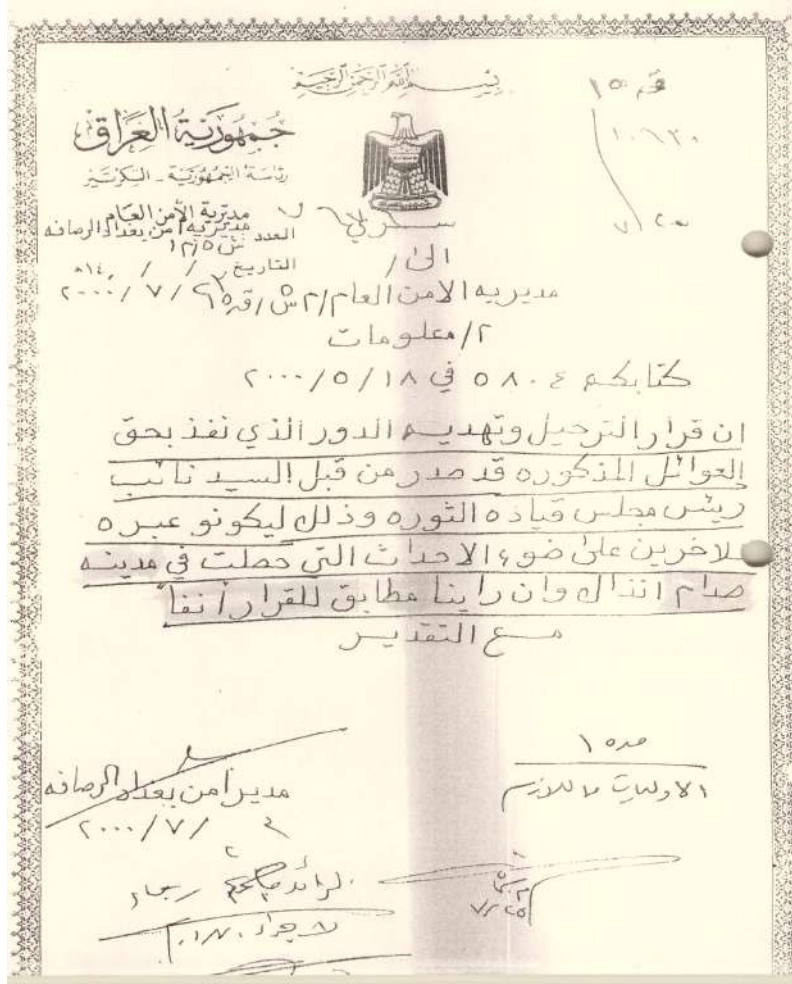 بسم الله الرحمن الرحيم
جمهورية العراق
رئاسة الجمهورية - السكرتير
مديرية الأمن العام
مديرية امن بغداد الرصافه
العدد ش٥/م١
التاريخ / / ١٤هـ
/ ٧ / ٢٠٠٠
الى /
مديريه الامن العام/م ش/ق٥
م/معلومات
كتابكم ٥٨٠٤ في ٢٠٠٠/٥/١٨
ان قرار الترحيل وتهديم الدور الذي نفذ بحق
العوائل المذكوره قد صدر من قبل السيد نائب
رئيس مجلس قياده الثوره وذلك ليكونو عبره
للاخرين على ضوء الاحداث التي حصلت في مدينه
صدام انذاك وان راينا مطابق للقرار أنفاً
مع التقدير
مدير امن بغداد الرصافه
/ ٧ / ٢٠٠٠
الرائد
٧/٢٥